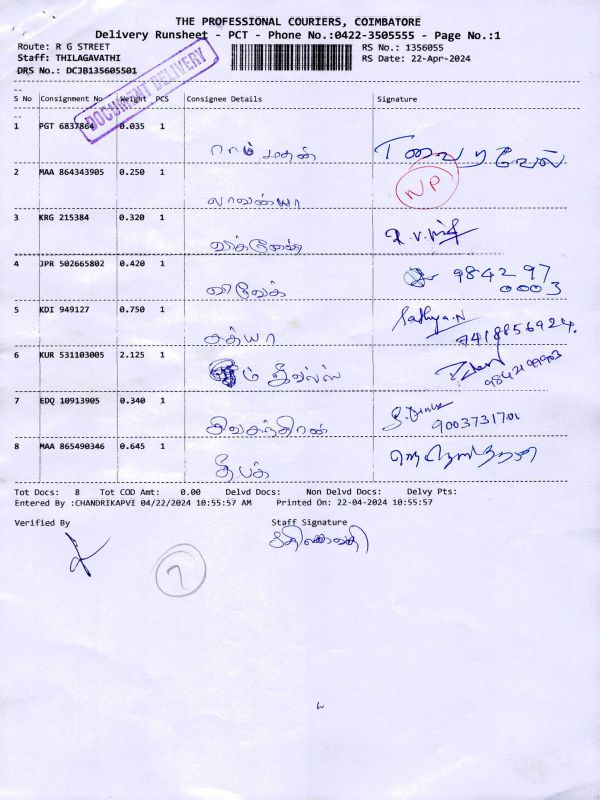 THE PROFESSIONAL COURIERS, COIMBATORE
Delivery Runsheet - PCT - Phone No.:0422-3505555 - Page No.:1
Route: R G STREET RS No.: 1356055
Staff: THILAGAVATHI RS Date: 22-Apr-2024
DRS No.: DCJB135605501
DOCUMENT DELIVERY
S No Consignment No Weight PCS Consignee Details Signature
1 PGT 6837864 0.035 1
ராம் மதன்
2 MAA 864343905 0.250 1 NP
லாவன்யா
3 KRG 215384 0.320 1
விக்னேஷ்
4 JPR 502665802 0.420 1 9842 97
விவேக் 0003
5 KDI 949127 0.750 1 Sathya.N
சத்யா 9418856924.
6 KUR 531103005 2.125 1
7 EDQ 10913905 0.340 1
சிவசந்திரன் 9003731701
8 MAA 865490346 0.645 1
தீபக்
Tot Docs: 8 Tot COD Amt: 0.00 Delvd Docs: Non Delvd Docs: Delvy Pts:
Entered By :CHANDRIKAPVI 04/22/2024 10:55:57 AM Printed On: 22-04-2024 10:55:57
Verified By Staff Signature
7